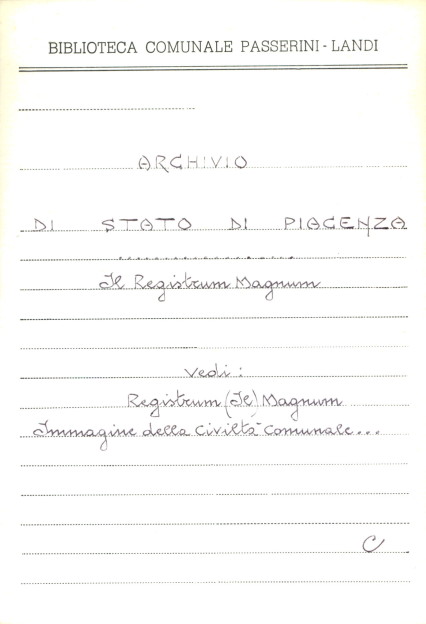 BIBLIOTECA COMUNALE PASSERINI - LANDI
ARCHIVIO
DI STATO DI PIACENZA
Il Registrum Magnum
Vedi :
Registrum (Il) Magnum
Immagine della Civiltà Comunale...
C